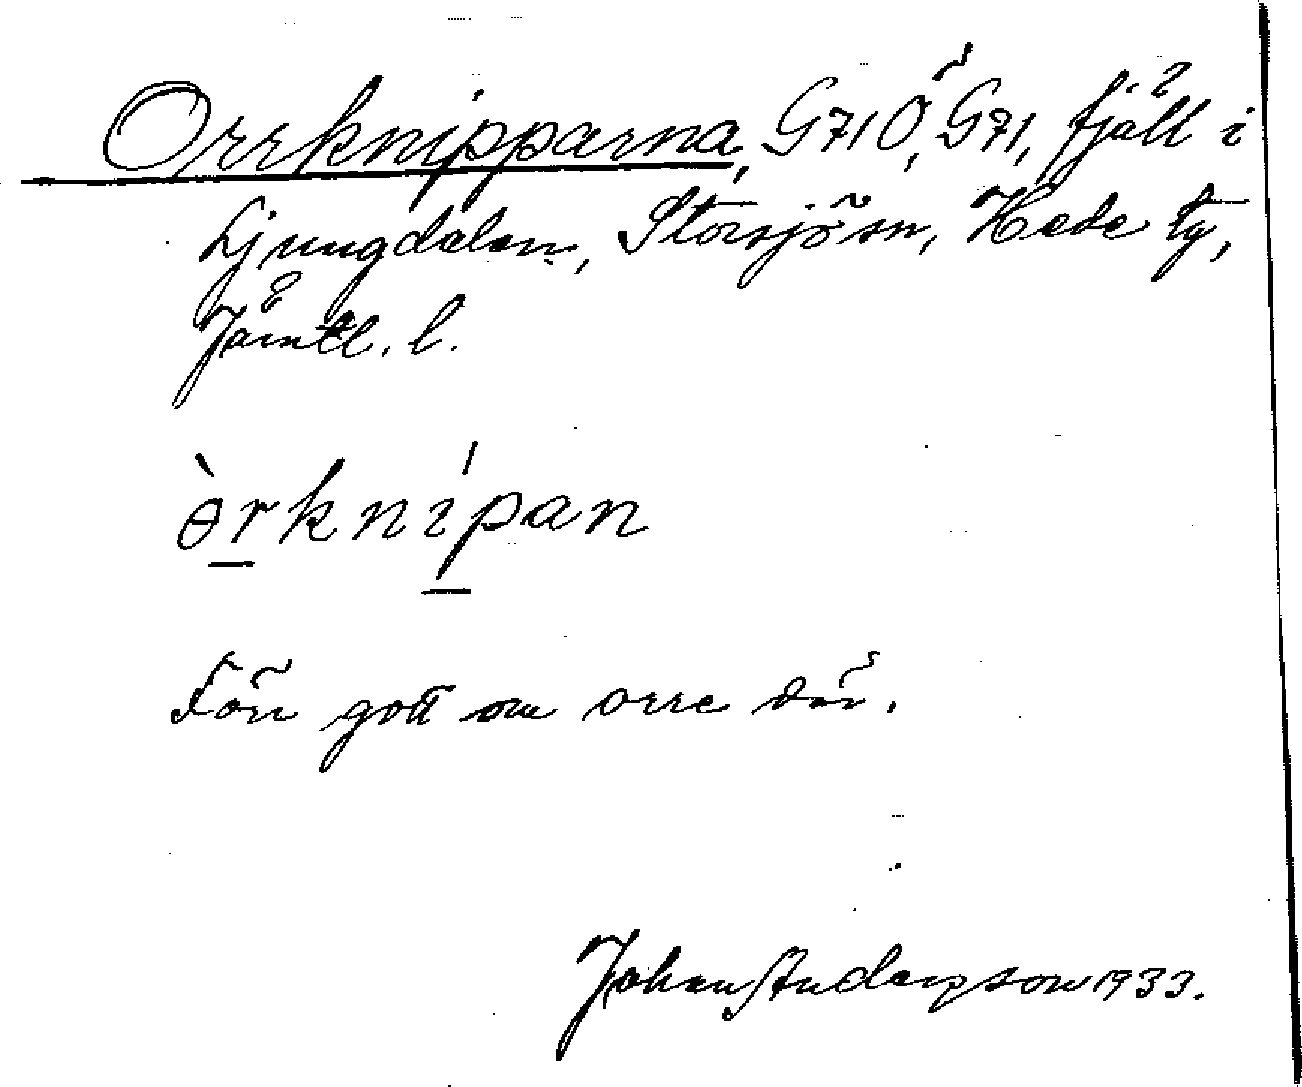 Orrknipparna, G71Ö, G71, fjäll i
Ljungdalen, Storsjö sn, Hede tg,
Jämtl. l.
òrknípan
Förr gott om orre där.
Johan Andersson 1933.